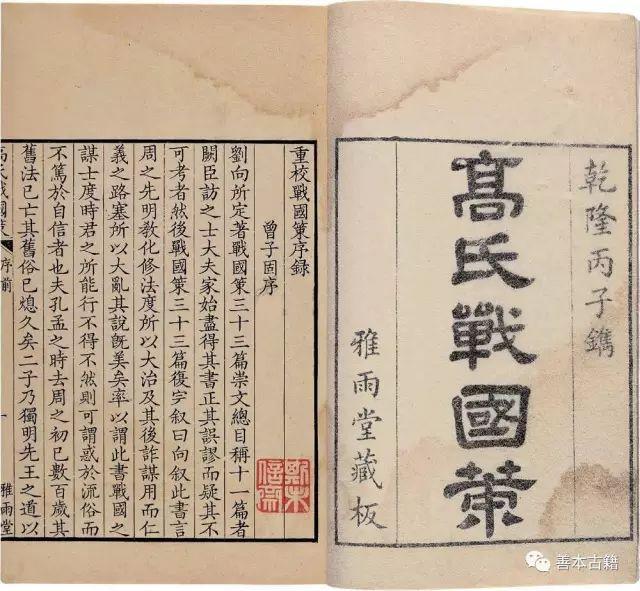 乾隆丙子鐫
髙氏戰國策
雅雨堂藏板
重校戰國策序録
曾子固序
劉向所定著戰國策三十三篇崇文總目稱十一篇者
闕臣訪之士大夫家始盡得其書正其誤謬而疑其不
可考者然後戰國策三十三篇復完叙曰向叙此書言
周之先明敎化修法度所以大治及其後詐謀用而仁
義之路塞所以大亂其說旣美矣率以謂此書戰國之
謀士度時君之所能行不得不然則可謂惑於流俗而
不篤於自信者也夫孔孟之時去周之初已數百歲其
舊法已亡其舊俗已熄久矣二子乃獨明先王之道以
高氏戰國策 序前 一 雅雨堂
善本古籍